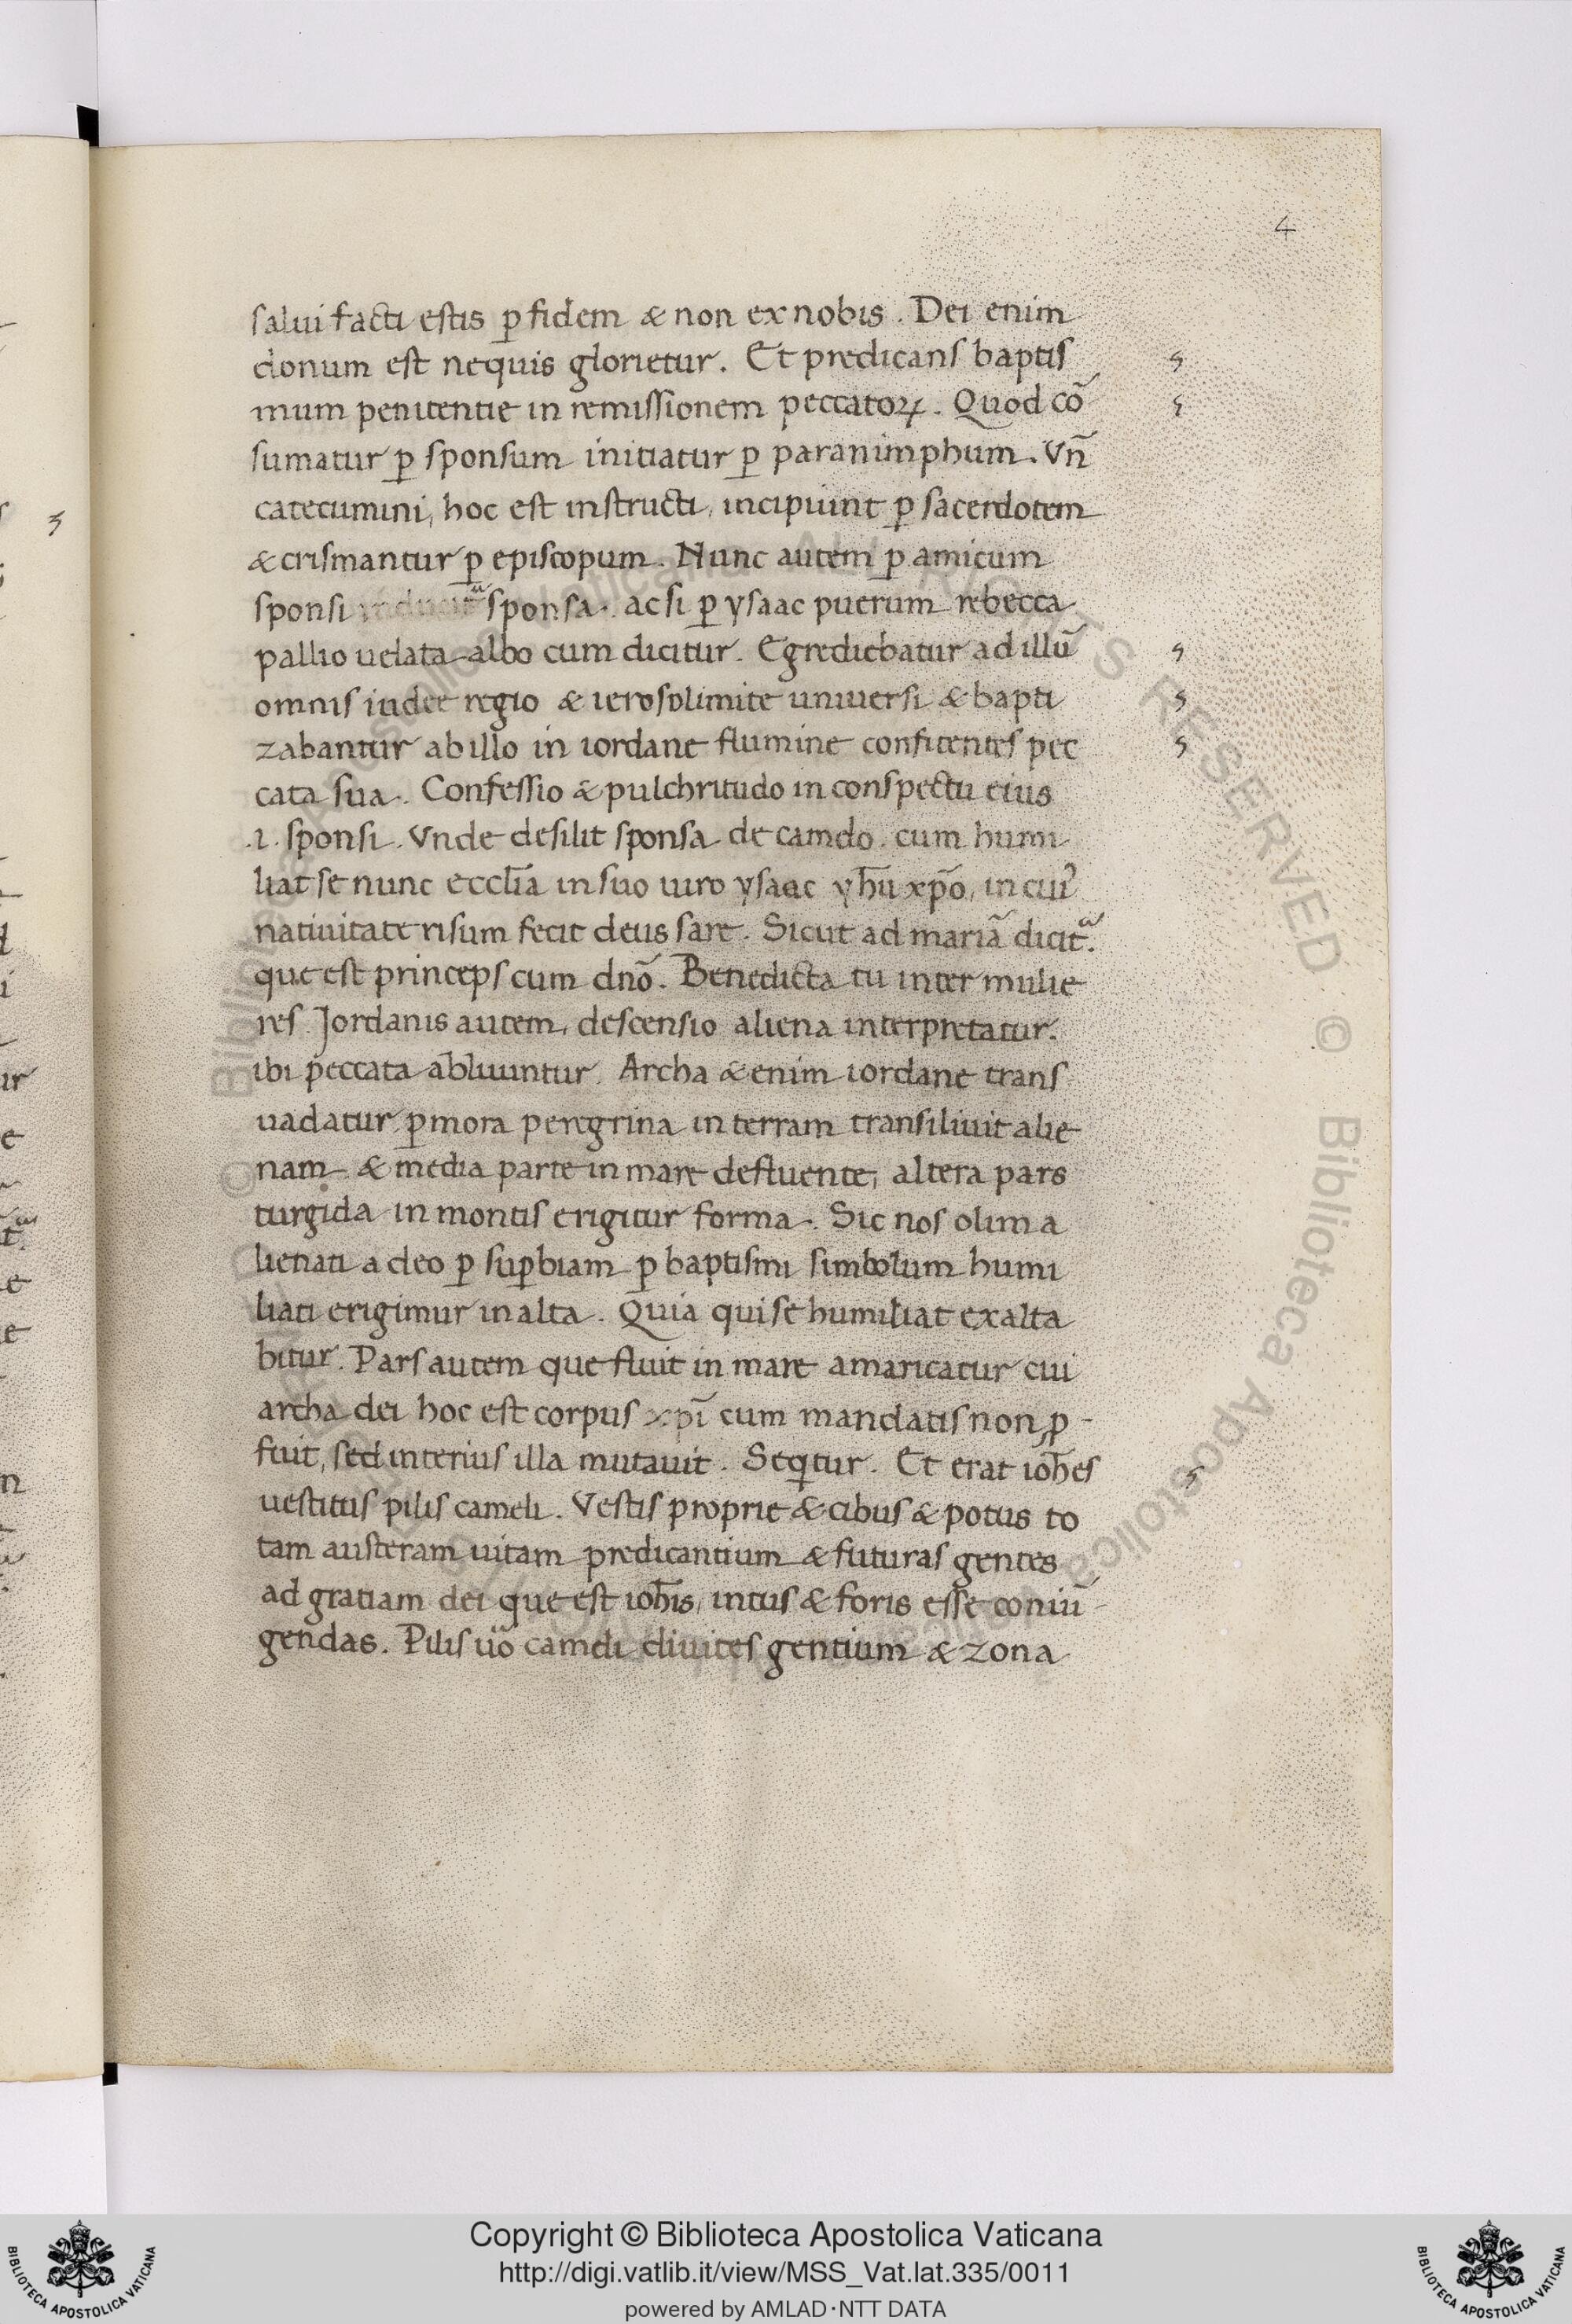 4
salui facti estis ꝑ fidem & non ex nobis . Dei enim
donum est nequis glorietur . Et predicans baptis
mum penitentie in remissionem peccatoꝝ . Quod cõ
sumatur ꝑ sponsum initiatur ꝑ paranimphum . Vñ
catecumini, hoc est instructi, incipiunt ꝑ sacerdotem
& crismantur ꝑ episcopum . Nunc autem ꝑ amicum
sponsi sponsa . ac si ꝑ ysaac puerum rebecca
pallio uelata albo cum dicitur . Egrediebatur ad illũ
omnis iudee regio & ierosolimite uniuersi & bapti
zabantur ab illo in iordane flumine confitentes pec
cata sua . Confessio & pulchritudo in conspectu eius
.i. sponsi . Vnde desilit sponsa de camelo . cum humi
liat se nunc ecclĩa in suo uiro ysaac yhũ xp̃o, in cuiꝰ
natiuitate risum fecit deus sare . Sicut ad mariã dicitᷓ.
que est princeps cum dnõ . Benedicta tu inter mulie
res . Jordanis autem, descensio aliena interpretatur.
ibi peccata abluuntur . Archa & enim iordane trans
uadatur ꝑ mora peregrina in terram transiliuit alie
nam & media parte in mare defluente, altera pars
turgida in montis erigitur forma . Sic nos olim a
lienati a deo ꝑ suꝑbiam ꝑ baptismi simbolum humi
liati erigimur in alta . Quia qui se humiliat exalta
bitur . Pars autem que fluit in mare amaricatur cui
archa dei hoc est corpus xpĩ cum mandatis non ꝓ-
fuit, sed interius illa mutauit . Seqitur . Et erat ioh̃es
uestitus pilis cameli . Vestis proprie & cibus & potus to
tam austeram uitam predicantium & futuras gentes
ad gratiam dei que est ioh̃is, intus & foris esse coniũ-
gendas . Pilis ũo cameli diuites gentium & zona
© Biblioteca Apostolica Vaticana ALL RIGHTS RESERVED
Copyright © Biblioteca Apostolica Vaticana
http://digi.vatlib.it/view/MSS_Vat.lat.335/0011
powered by AMLAD·NTT DATA
BIBLIOTECA APOSTOLICA VATICANA
BIBLIOTECA APOSTOLICA VATICANA